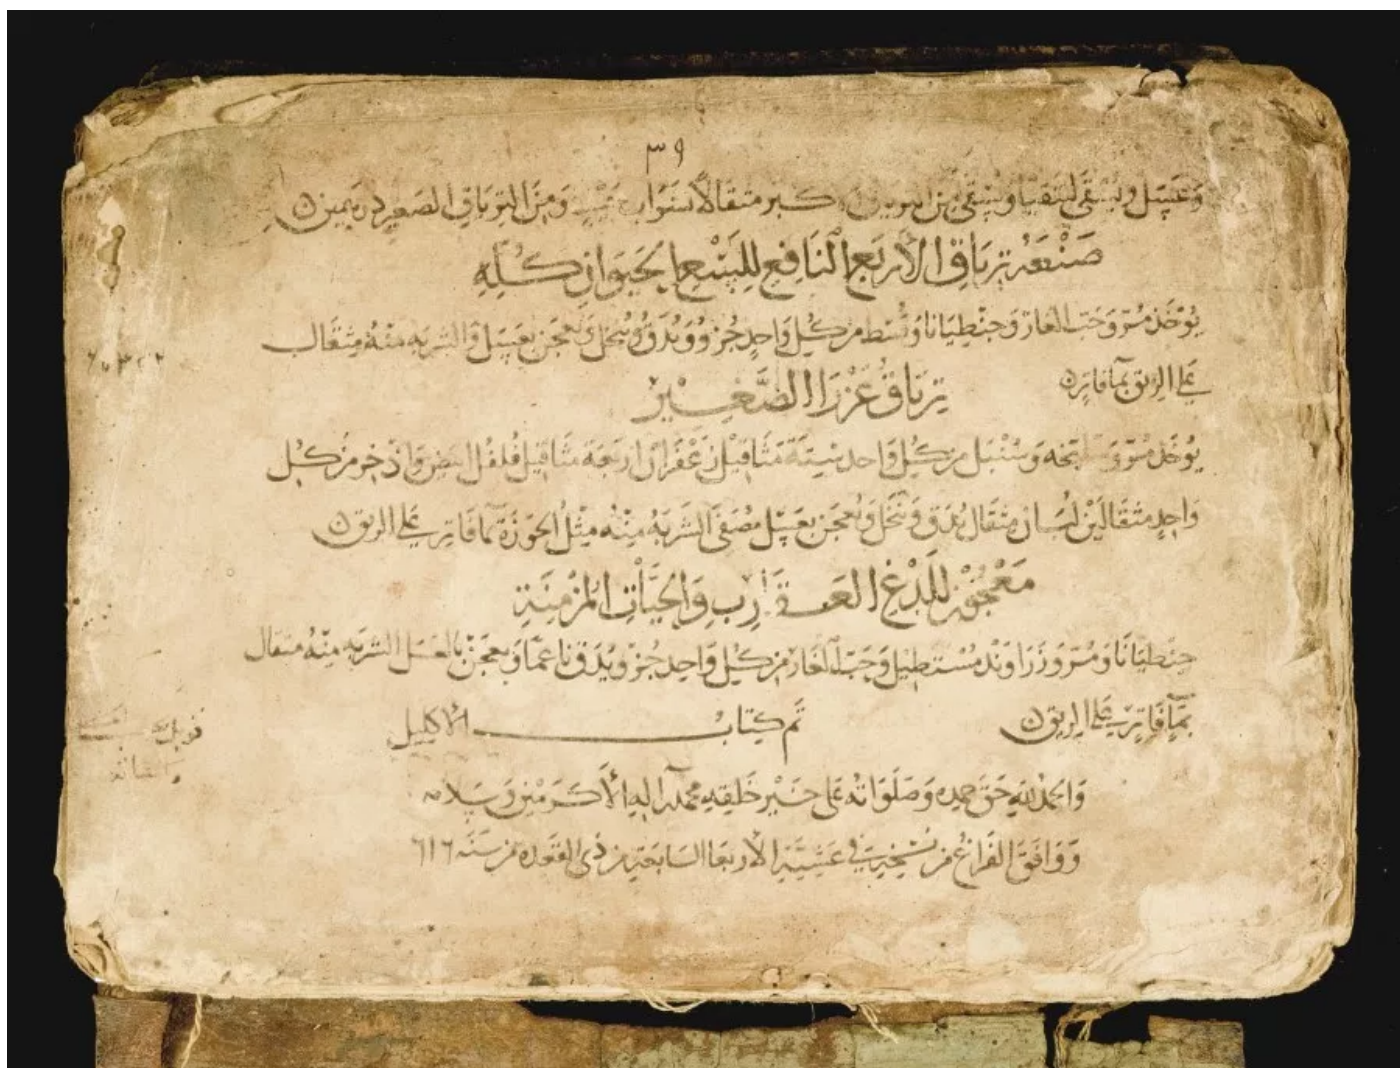 ٣٩
وعسل ويسقى ليتقيأ ويسقى من الترياق كبير مثقالا بشراب ومن الترياق الصغير درهمين
صنعة ترياق الاربع النافع للسع الحيوان كله
يوخذ مر وحب الغار وجنطيانا وقسط من كل واحد جزو ويدق وينخل ويعجن بعسل والشربه منه مثقال
على الريق بما فاتر
ترياق عزرا الصغير
يوخذ مر وسليخه وسنبل من كل واحد ستة مثاقيل زعفران اربعة مثاقيل فلفل ابيض واذخر من كل
واحد مثقالين لبان مثقال يدق وينخل ويعجن بعسل مصفى الشربه منه مثل الجوزة بما فاتر على الريق
معجون للدغ العقارب والحيات المزمنة
جنطيانا ومر وزراوند مستطيل وحب الغار من كل واحد جزو ويدق ناعما ويعجن بالعسل الشربه منه مثقال
بما فاتر على الريق
تم كتاب الاكليل
والحمد لله حق حمده وصلواته على خير خلقه محمد واله الاكرمين وسلامه
ووافق الفراغ من نسخه في عشية الاربعا السابعة من ذي القعده من سنه ٦١٦
قوبل